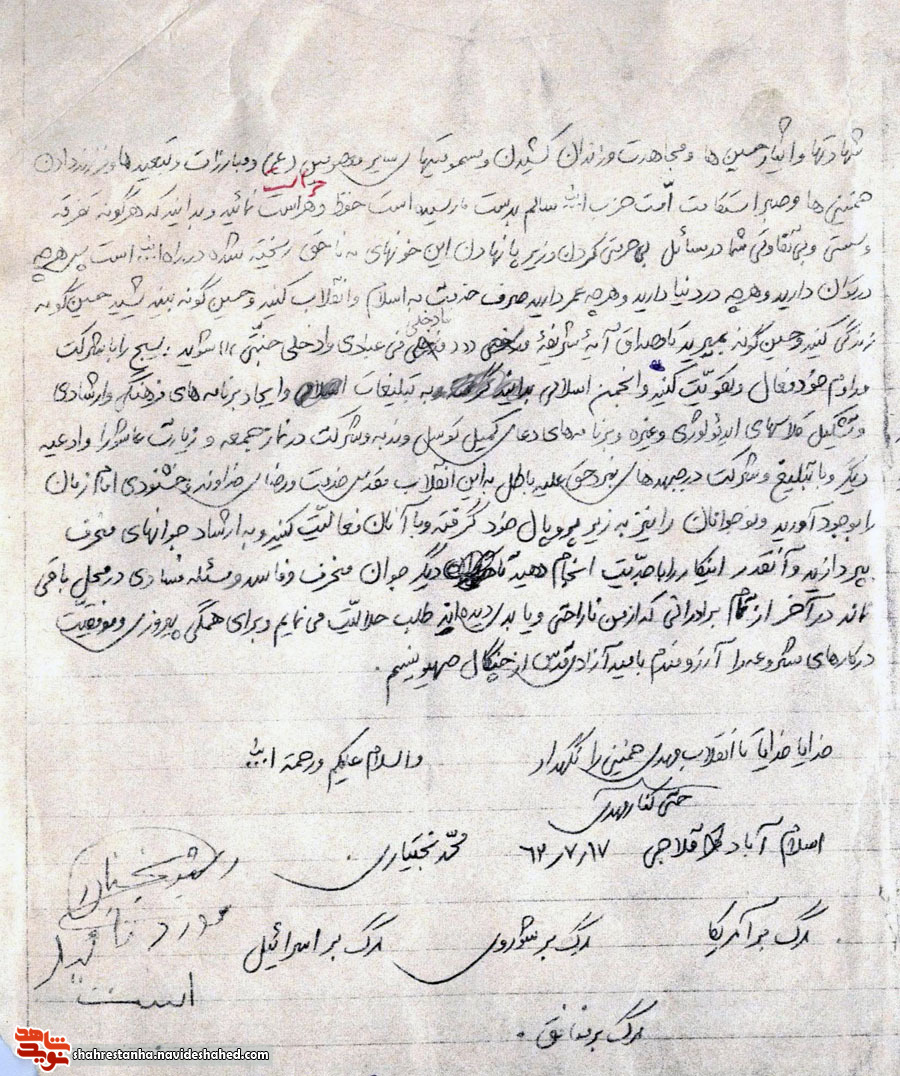 شهادتها و ایثار حسین ها و مجاهدت و زندان کشیدن و مسمومیتهای سایر معصومین (ع) و مبارزات و تبعیدها و زجر دادن
حراست
خمینی ها و صبر و استقامت امّت حزب الله سالم بدست ما رسیده است حفظ و هراست نمائید و بدانید که هرگونه تفرقه
و سستی و بی تفاوتی شما در مسائل بی حرمتی کردن و زیر پا نهادن این خونهای به ناحق ریخته شده در راه الله است پس هرچه
در توان دارید و هرچه در دنیا دارید و هرچه عمر دارید صرف خدمت به اسلام و انقلاب کنید و حسین گونه بیندیشید حسین گونه
زندگی کنید و حسین گونه بمیرید تا مصداق آیهٔ شریفهٔ فادخلی فی عبادی وادخلی جنّتی )) شوید . بسیج را با شرکت
مداوم خود فعال و تقویّت کنید و انجمن اسلامی و به تبلیغات و ایجاد برنامه های فرهنگی و ارشادی
و تشکیل کلاسهای ایدئولوژی و غیره و برنامه های دعای کمیل توسل و ندبه و شرکت در نماز جمعه و زیارت عاشورا و ادعیه
دیگر و با تبلیغ و شرکت در جبهه های نبرد حق علیه باطل به این انقلاب مقدس خدمت و رضای خداوند و خشنودی امام زمان
را بوجود آورید و نوجوانان را نیز به زیر پر و بال خود گرفته و با آنان فعالیّت کنید و به ارشاد جوانهای منحرف
بپردازید و آنقدر اینکار را با جدیّت انجام دهید تا دیگر جوان منحرف و فاسد و مسئله فسادی در محل باقی
نماند در آخر از تمام برادرانی که از من ناراحتی و یا بدی دیده اند طلب حلالیّت می نمایم و برای همگی پیروزی و موفقیّت
در کارهای مشروعه را آرزومندم بامید آزادی قدس از چنگال صهیونیسم .
خدایا خدایا تا انقلاب مهدی خمینی را نگهدار
والسلام علیکم و رحمة الله
حتی کنار مهدی
اسلام آباد قلاجی ۶۲/۷/۱۷ محمّد بختیاری
رشید بختیاری
مورد تائید
است
مرگ بر آمریکا مرگ بر شوروی مرگ بر اسرائیل
مرگ بر منافق .
نوید شاهد
shahrestanha.navideshahed.com